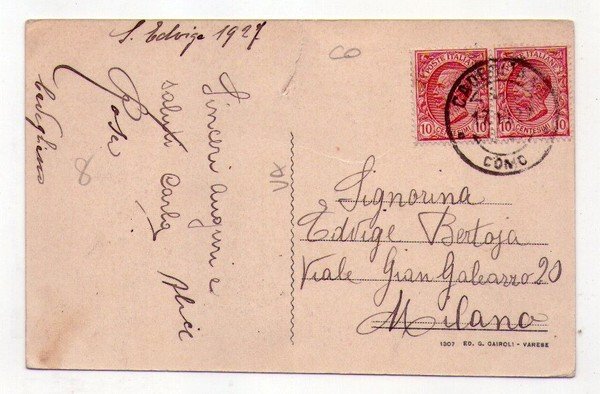 S. Edvige 1927
Sinceri auguri e
saluti Carla Alice
Rosa
POSTE ITALIANE
10 CENTESIMI 10
POSTE ITALIANE
10 CENTESIMI 10
COMO
Signorina
Edvige Bertoja
Viale Gian Galeazzo 20
Milano
1307 ED. G. GAIROLI - VARESE